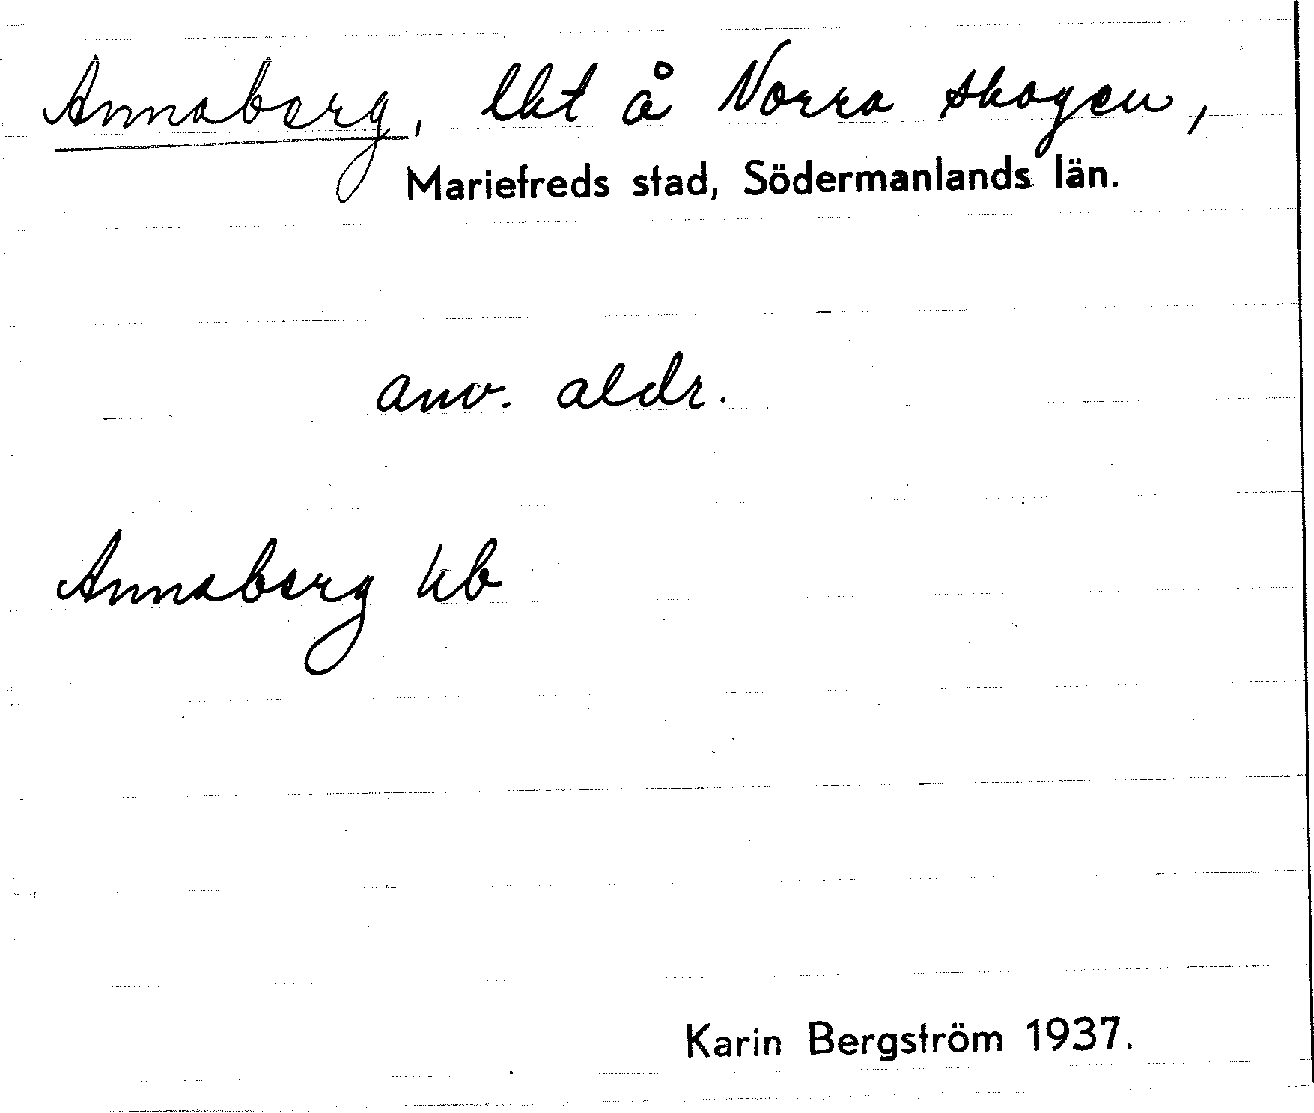 Annaberg, lht å Norra skogen,
Mariefreds stad, Södermanlands län.
anv. aldr.
Annaberg kb
Karin Bergström 1937.